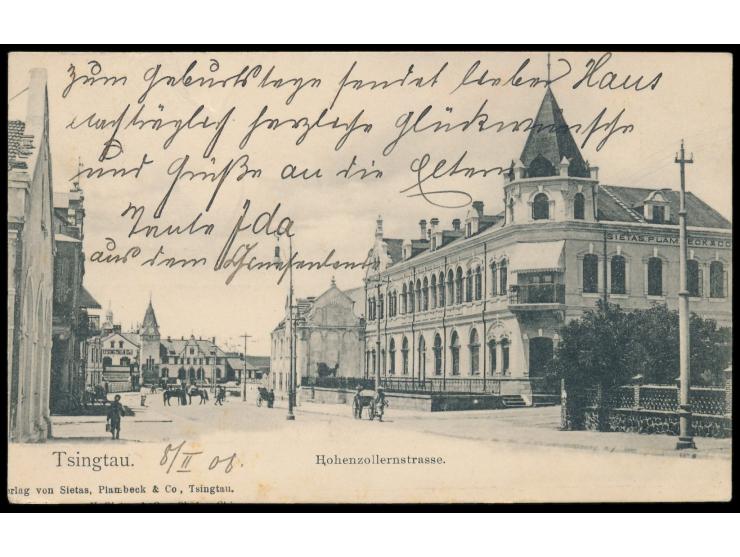 Zum Geburtstage sendet lieber Hans
nachträglich herzliche Glückwünsche
und Grüße an die Eltern
Tante Ida
aus dem
SIETAS, PLAMBECK & CO
Tsingtau. 8/II 06.
Hohenzollernstrasse.
erlag von Sietas, Plambeck & Co, Tsingtau.